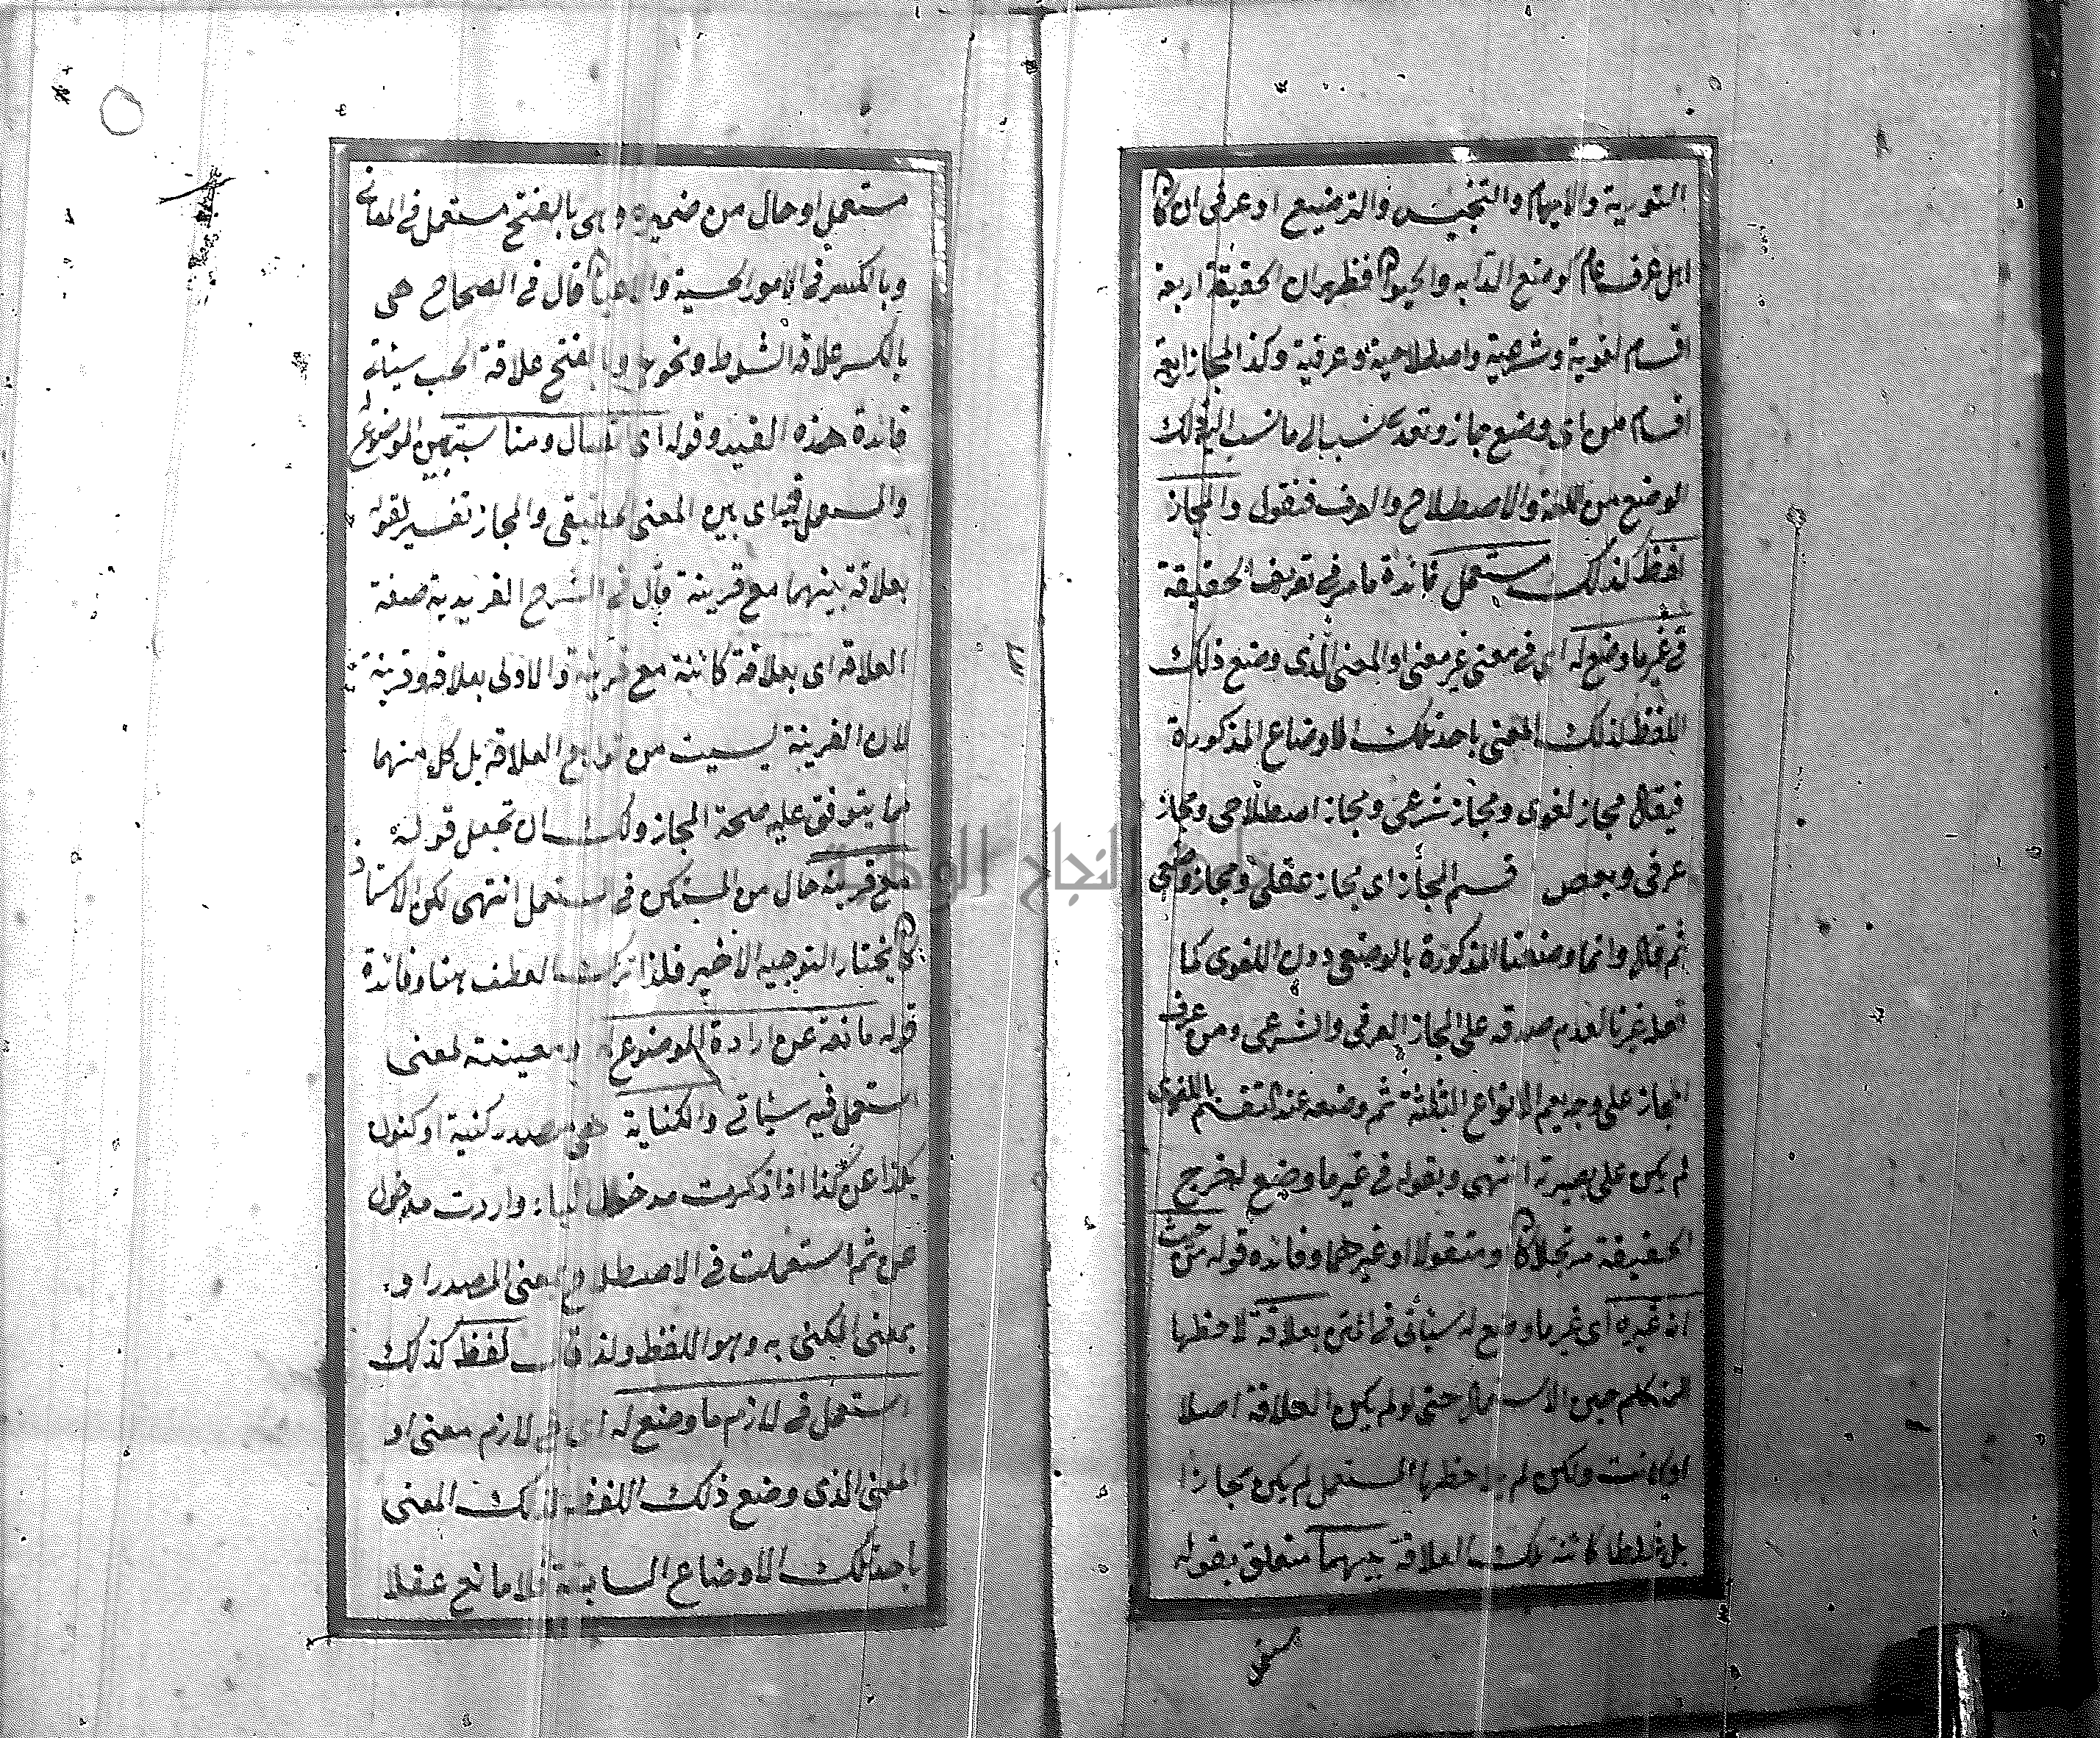 التورية والايهام والتجنيس والترصيع او عرفى ان كا
اهل عرف عام كوضع الدابه والحيوا فظهر ان الحقيقة اربعة
اقسام لغوية وشرعية واصطلاحية وعرفية وكذا المجاز اربعة
اقسام من اى وضع مجاز وتعد نسب الى ما نسب اليه ذلك
الوضع من اللغة والاصطلاح والعرف فنقول والمجاز
لفظ كذلك مستعمل فائدة ما مر فى تعريف الحقيقة
فى غير ما وضع له اى فى معنى غير معنى او المعنى الذى وضع ذلك
اللفظ لذلك المعنى باحد تلك الاوضاع المذكورة
فيقال مجاز لغوى ومجاز شرعى ومجاز اصطلاحى ومجاز
عرفى وبعض قسم المجاز اى مجاز عقلى ومجاز وضعى
ثم قال وانما وصفنا المذكورة بالوضعى دون اللغوى كما
فعله غيرنا لعدم صدقه على المجاز العرفى والشرعى ومن عرف
المجاز على وجه يعم الانواع الثلثة ثم وضعه عند التقسيم باللغوى
لم يكن على بصيرة انتهى وبقوله فى غير ما وضع له خرج
الحقيقة مرتجلا كا ومنقولا او غيرهما وفائده قوله من حيث
انه غيره اى غير ما وضع له سيأتى فى المتن بعلاقة لاحظها
المتكلم حين الاستعمال حتى لو لم يكن العلاقة اصلا
او كانت ولكن لم يلاحظها المستعمل لم يكن مجازا
بل غلطا كائنة تلك العلاقة بينهما متعلق بقوله
مستعمل
مستعمل او حال من ضميره وهى بالفتح مستعمل فى المعانى
وبالكسر فى الامور الحسية والاعيا قال فى الصحاح هى
بالكسر علاقة الشوط ونحوه وبالفتح علاقة الحب سيأتى
فائدة هذه القيد وقوله اى اتصال ومناسبة بين الموضوع له
والمستعمل فيه اى بين المعنى الحقيقى والمجاز تفسير لقوله
بعلاقة بينهما مع قرينة قال فى الشرح الفريدية صفة
العلاقة اى بعلاقة كائنة مع قرينة والاولى بعلاقة وقرينة
لان القرينة ليست من توابع العلاقة بل كل منهما
مما يتوقف عليه صحة المجاز ولك ان تجعل قوله
مع قرينة حال من المستكن فى مستعمل انتهى لكن الاستاذ
كا يختار التوجيه الاخير فلذا ترك العطف هنا وفائدة
قوله مانعة عن ارادة الموضوع له ومعينة لمعنى
استعمل فيه سيأتى والكناية هى مصدر كنيت او كنوت
بكذا عن كذا اذا ذكرت مدخول الباء واردت مدخول
عن ثم استعملت فى الاصطلاح بمعنى المصدر او
بمعنى المكنى به وهو اللفظ ولذ قال لفظ كذلك
استعمل فى لازم ما وضع له اى فى لازم معنى او
المعنى الذى وضع ذلك اللفظ لذلك المعنى
باحد تلك الاوضاع السابقة بلا مانع عقلا